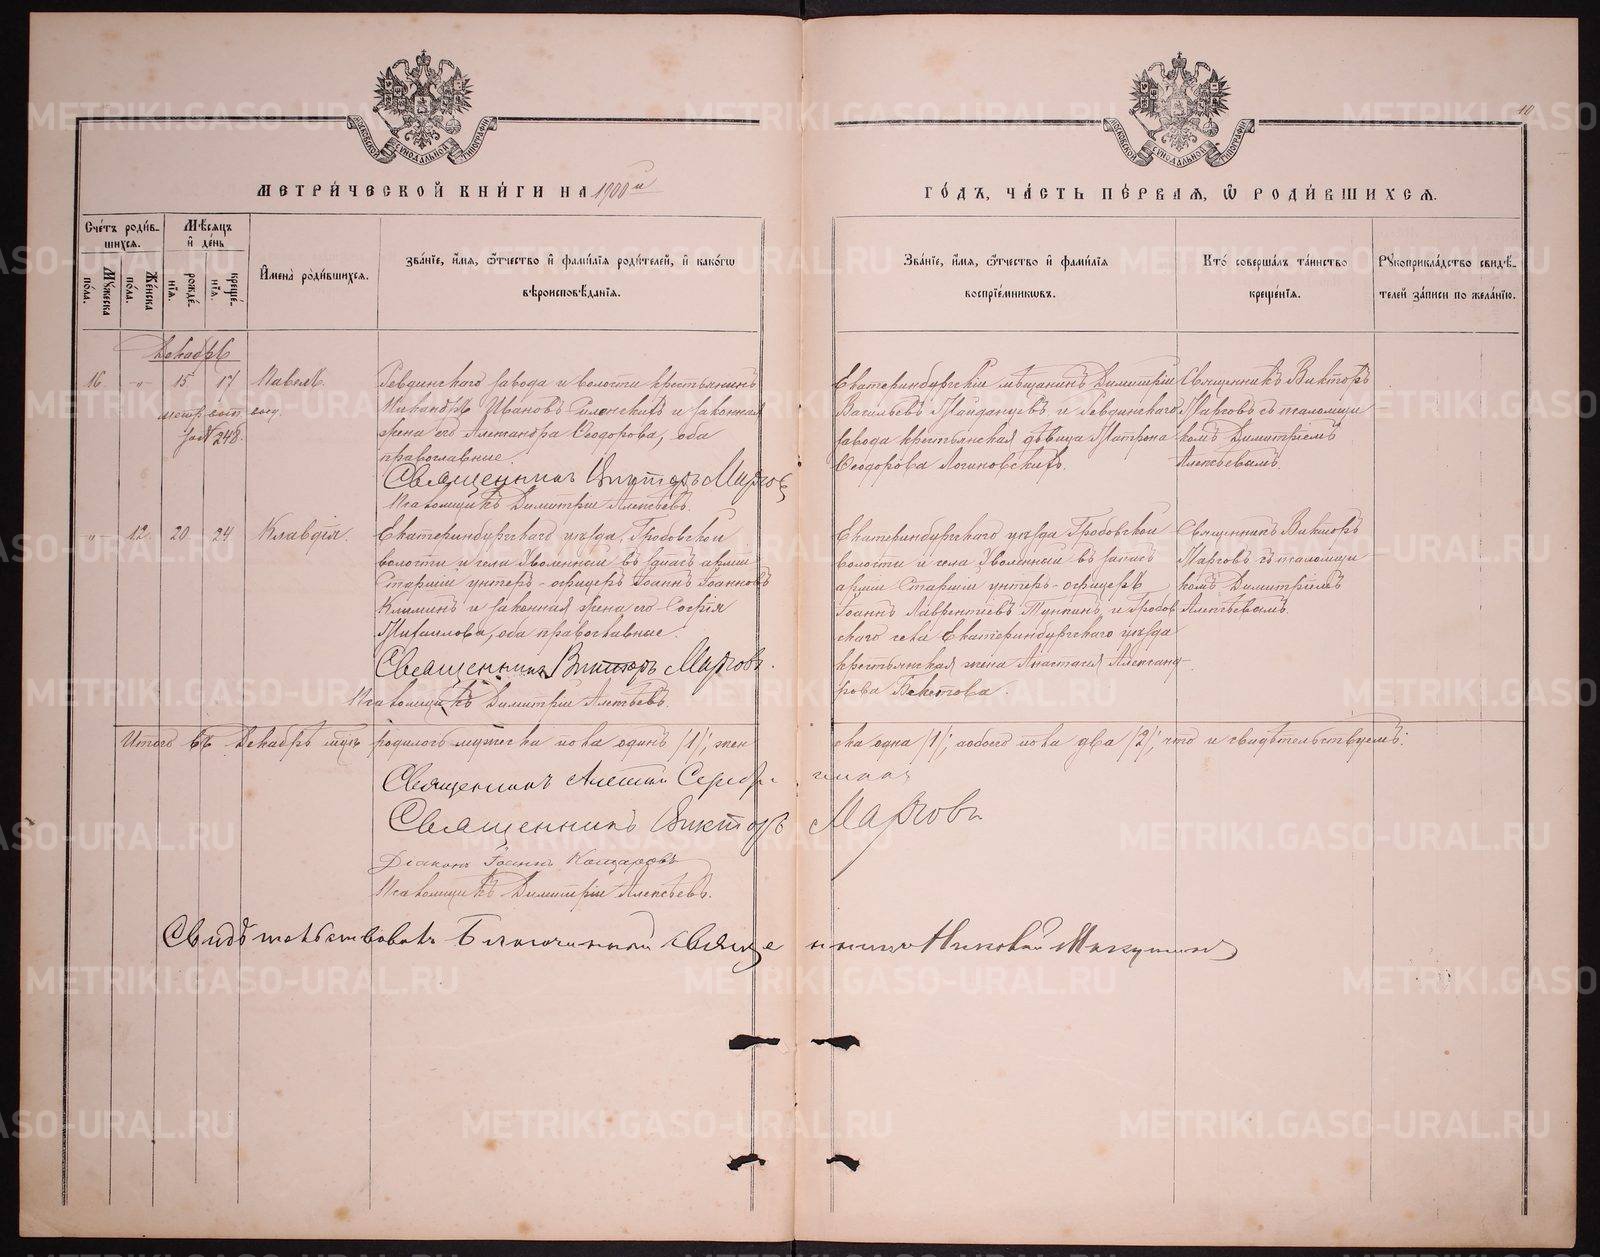 МЕТРИ́ЧЕСКОЙ КНИ́ГИ НА 1900 й
ГО́ДЪ, ЧА́СТЬ ПЕ́РВАѦ, Ѡ РОДИ́ВШИХСѦ.
10
МОСКОВСКОЙ СѴНОДАЛЬНОЙ ТИПОГРАФІИ
МОСКОВСКОЙ СѴНОДАЛЬНОЙ ТИПОГРАФІИ
Сче́тъ роди́в-
шихсѧ.
Мѣ́сѧцъ
и҆ де́нь
Мꙋ́жеска
по́ла.
Же́нска
по́ла.
рожде́-
нїѧ.
креще́-
нїѧ.
И҆мена̀ роди́вшихсѧ.
Зва́нїе, и҆́мѧ, ѻ҆́тчество и҆ фами́лїѧ роди́телей, и҆ како́гѡ
вѣроисповѣ́данїѧ.
Зва́нїе, и҆́мѧ, ѻ҆́тчество и҆ фами́лїѧ
воспрїе́мникѡвъ.
Кто̀ соверша́лъ та́инство
креще́нїѧ.
Рꙋкоприкла́дство свидѣ́-
телей за́писи по жела́нїю.
Декабрь
16 -"- 15 17 Павелъ.
Ревдинскаго завода и волости крестьянинъ
Никандръ Ивановъ и законная
жена его Александра Ѳеодорова, оба
православные.
Священникъ Викторъ Маргов
Псаломщикъ Димитрій Алексѣевъ.
№ 248.
Екатеринбургскій мѣщанинъ Димитрій
Васильевъ и Ревдинскаго
завода крестьянская дѣвица Матрона
Ѳеодорова Логиновскихъ.
Священникъ Викторъ
Марговъ съ псаломщи
комъ Димитріемъ
Алексѣевымъ.
-"- 12. 20 24 Клавдія.
Екатеринбургскаго уѣзда, Гробовской
волости и села Уволенный въ запасъ арміи
Старшій унтеръ-офицеръ Іоаннъ Іоанновъ
и законная жена его Софія
Михаилова, оба православные.
Священникъ Викторъ Марговъ.
Псаломщикъ Димитрій Алексѣевъ.
Екатеринбургскаго уѣзда Гробовской
волости и села Уволенный въ запасъ
арміи Старшій унтеръ-офицеръ
Іоаннъ Лаврентіевъ и Гробов
скаго села Екатеринбургскаго уѣзда
крестьянская жена Анастасія Александ-
рова
Священникъ Викторъ
Марговъ съ псаломщи
комъ Димитріемъ
Алексѣевымъ.
Итого въ Декабрѣ родилось мужеска пола одинъ /1/; жен
ска одна /1/; обоего пола два /2/; что и свидѣтельствуемъ:
Священникъ Алексій
Священникъ Викторъ Марговъ
Діаконъ Іоаннъ
Псаломщикъ Димитрій Алексѣевъ.
Свидѣтельствовалъ Благочинный Священникъ Николай
METRIKI.GASO-URAL.RU